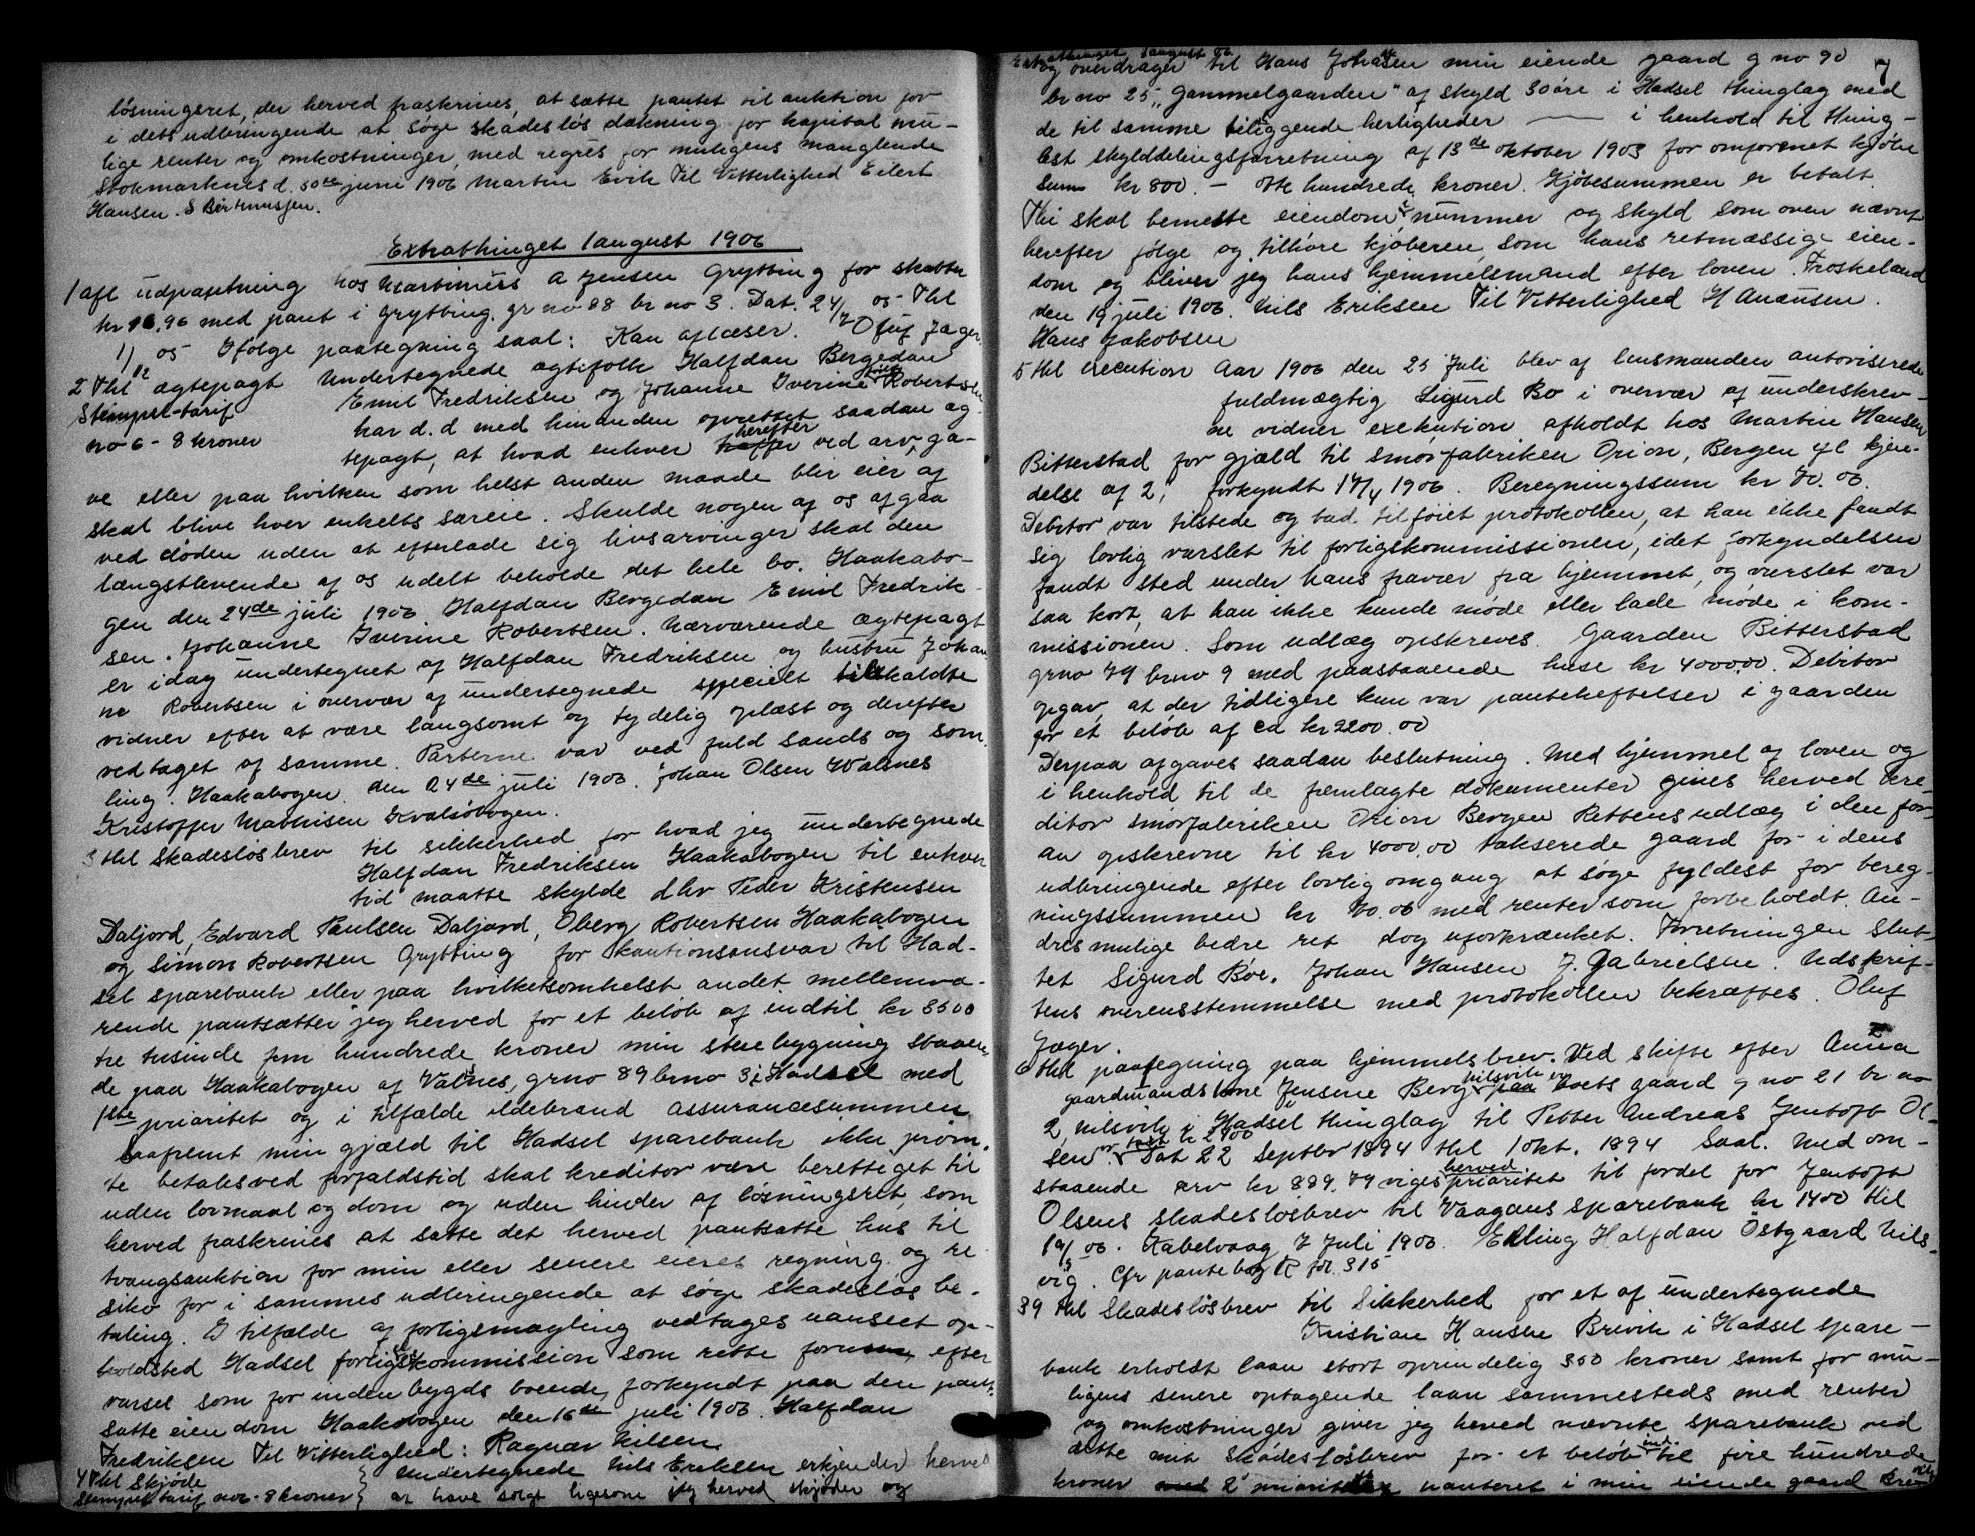 løsningsret, der herved fraskrives, at sætte pantet til auktion for
i dets udbringende at søge skadesløs dækning for kapital mu-
lige renter og omkostninger, med regres for muligens manglende
Stokmarknes d. 30te juni 1906 Martin Evik Til Vitterlighed Eilert
Hansen. S Bertheussen.
Extrathinget 1 august 1906
1 afl udpantning hos Martinius A Jensen Grytting for skatter
kr 16.96 med pant i Grytting. gr no 88 br no 3. Dat. 24/7 05 Thl
1/12 05 Ifølge paategning saal: Kan aflæses. Oluf Jæger.
2 Thl ægtepagt Undertegnede ægtefolk Halfdan Bergedan
Stempel-tarif Emil Fredriksen og Johanne Iverine født Robertsen
no 6 - 8 kroner har d. d med hinanden oprettet saadan æg-
tepagt, at hvad enhver herefter ved arv, ga-
ve eller paa hvilken som helst anden maade blir eier af
skal blive hver enkelts særeie. Skulde nogen af os afgaa
ved døden uden at efterlade sig livsarvinger skal den
længstlevende af os udelt beholde det hele bo. Haakabo-
gen den 24de juli 1906 Halfdan Bergedan Emil Fredrik-
sen. Johanne Iverine Robertsen. Nærværende ægtepagt
er idag undertegnet af Halfdan Fredriksen og hustru Johan
ne Robertsen i overvær af undertegnede specielt tilkaldte
vidner efter at være langsomt og tydelig oplæst og derefter
vedtaget af samme. Parterne var ved fuld sands og sam
ling. Haakabogen den 24de juli 1906. Johan Olsen Walsnes
Kristoffer Mathisen Kvalsøbogen.
3 thl Skadesløsbrev til sikkerhed for hvad jeg undertegnede
Halfdan Fredriksen Haakabogen til enhver
tid maatte skylde d hr Peder Kristensen
Daljord, Edvard Paulsen Daljord, Oberg Robertsen Haakabogen
og Simon Robertsen Grytting for kautionsansvar til Had-
sel sparebank eller paa hvilketsomhelst andet mellemvæ-
rende pantsætter jeg herved for et beløb af indtil kr 3500
tre tusinde fem hundrede kroner min støre bygning staaen
de paa Haakabogen af Valsnes, grno 89 brno 3 i Hadsel med
1ste prioritet og i tilfælde ildebrand assurancesummen
Saafremt min gjæld til Hadsel sparebank ikke prom.
te betales ved forfaldstid skal kreditor være berettiget til
uden lovmaal og dom og uden hinder af løsningsret, som
herved fraskrives at sætte det herved pantsatte hus til
tvangsauktion for min eller senere eieres regning og re
siko for i sammes udbringende at søge skadesløs be-
taling. I tilfælde af forligsmægling vedtages uanseet op-
holdsted Hadsel forligskommission som rette forum, efter
varsel som for inden bygds boende, forkyndt paa den pant-
satte eiendom Haakabogen den 16de juli 1906. Halfdan
Fredriksen Til Vitterlighed: Ragnar Nilsen
4 thl Skjøde Undertegnede Nils Eriksen erkjender herved
Stempeltarif no 2 - 8 kroner at have solgt ligesom jeg herved skjøder og
Extrathinget 1 august 06
7
og overdrager til Hans Johansen min eiende gaard g no 90
br no 25 "Gammelgaarden" af skyld 30 øre i Hadsel thinglag med
de til samme tilliggende herligheder — i henhold til thing-
læst skylddelingsforretning af 13de oktober 1903 for omforenet kjøbe
sum kr 800.- otte hundrede kroner. Kjøbesummen er betalt.
Thi skal bemeldte eiendom, nummer og skyld som oven nævnt
herefter følge og tilhøre kjøberen som hans retmæssige eien-
dom og bliver jeg hans hjemmelsmand efter loven. Froskeland
den 19 juli 1906. Nils Eriksen Til Vitterlighed H Anæusen.
Hans Jakobsen
5 thl execution Aar 1906 den 23 Juli blev af lensmanden autoriserede
fuldmægtig Sigurd Bø i overvær af underskrev-
ne vidner exekution afholdt hos Martin Hansen
Bitterstad for gjæld til Smørfabriken Orion, Bergen ifl kjen-
delse af 2, forkyndt 17/4 1906. Beregningssum kr 70.06.
Debitor var tilstede og bad tilføiet protokollen, at han ikke fandt
sig lovlig varslet til forligskommissionen, idet forkyndelsen
fandt sted under hans fravær fra hjemmet, og varslet var
saa kort, at han ikke kunde møde eller lade møde i kom-
missionen. Som udlæg opskreves. Gaarden Bitterstad
grno 79 brno 9 med paastaaende huse kr 4000.00. Debitor
opgav, at der tidligere kun var panteheftelser i gaarden
for et beløb af ca kr 2200.00
Derpaa afgaves saadan beslutning. Med hjemmel af loven og
i henhold til de fremlagte dokumenter gives herved kre-
ditor Smørfabriken Orion Bergen Rettens udlæg i den for-
an opskrevne til kr 4000.00 takserede gaard for i dens
udbringende efter lovlig omgang at søge fyldest for bereg-
ningssummen kr 70.06 med renter som forbeholdt. An-
dres mulige bedre ret dog uforkrænket. Forretningen slut-
tet Sigurd Bøe. Johan Hansen J. Gabrielsen. Udskrif-
tens overensstemmelse med protokollen bekræftes. Oluf
Jæger.
6 thl paategning paa hjemmelsbrev. Ved skifte efter Anna
gaardmandskone Jensine Berg Nilsvik er boets gaard g no 21 br no
2 Nilsvik i Hadsel thinglag til Petter Andreas Jentoft Ol-
sen for tax kr 2400 Dat 22 Septbr 1894 thl 1 okt. 1894 Saal. Med om-
staaende arv kr 889.79 viges herved prioritet til fordel for Jentoft
Olsens skadesløsbrev til Vaagans sparebank kr 1400 thl
19/5 06. Kabelvaag 7 Juli 1906. Elling Halfdan Østgaard Nils-
vig. Cfr pantebog R fol. 315
39 thl Skadesløsbrev til Sikkerhed for et af undertegnede
Kristian Hansen Brevik i Hadsel spare-
bank erholdt laan stort oprindelig 350 kroner samt for mu-
ligens senere optagende laan sammesteds med renter
og omkostninger giver jeg herved nævnte sparebank ved
dette mit skadesløsbrev for et beløb indtil fire hundrede
kroner med 2 prioritets panteret i min eiende gaard Brevik